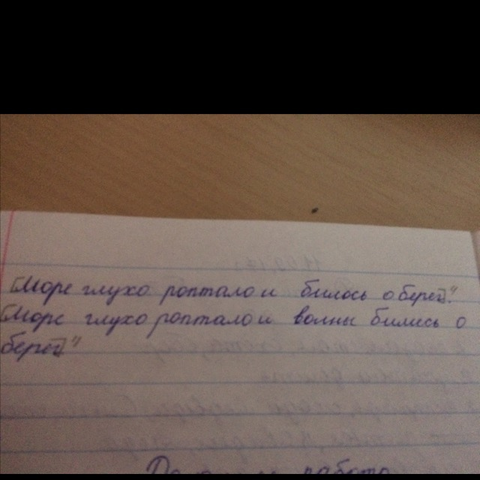 [Море глухо роптало и билось о берег]."
[Море глухо роптало и волны бились о
берег]."
Домашняя работа